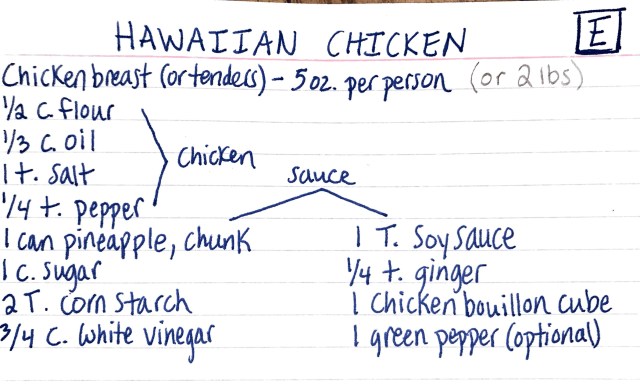 HAWAIIAN CHICKEN
E
Chicken breast (or tenders) - 5 oz. per person (or 2 lbs)
1/2 c. flour
1/3 c. oil
1 t. salt
1/4 t. pepper
Chicken
sauce
1 can pineapple, chunk
1 c. sugar
2 T. corn starch
3/4 c. white vinegar
1 T. Soy sauce
1/4 t. ginger
1 Chicken bouillon cube
1 green pepper (optional)